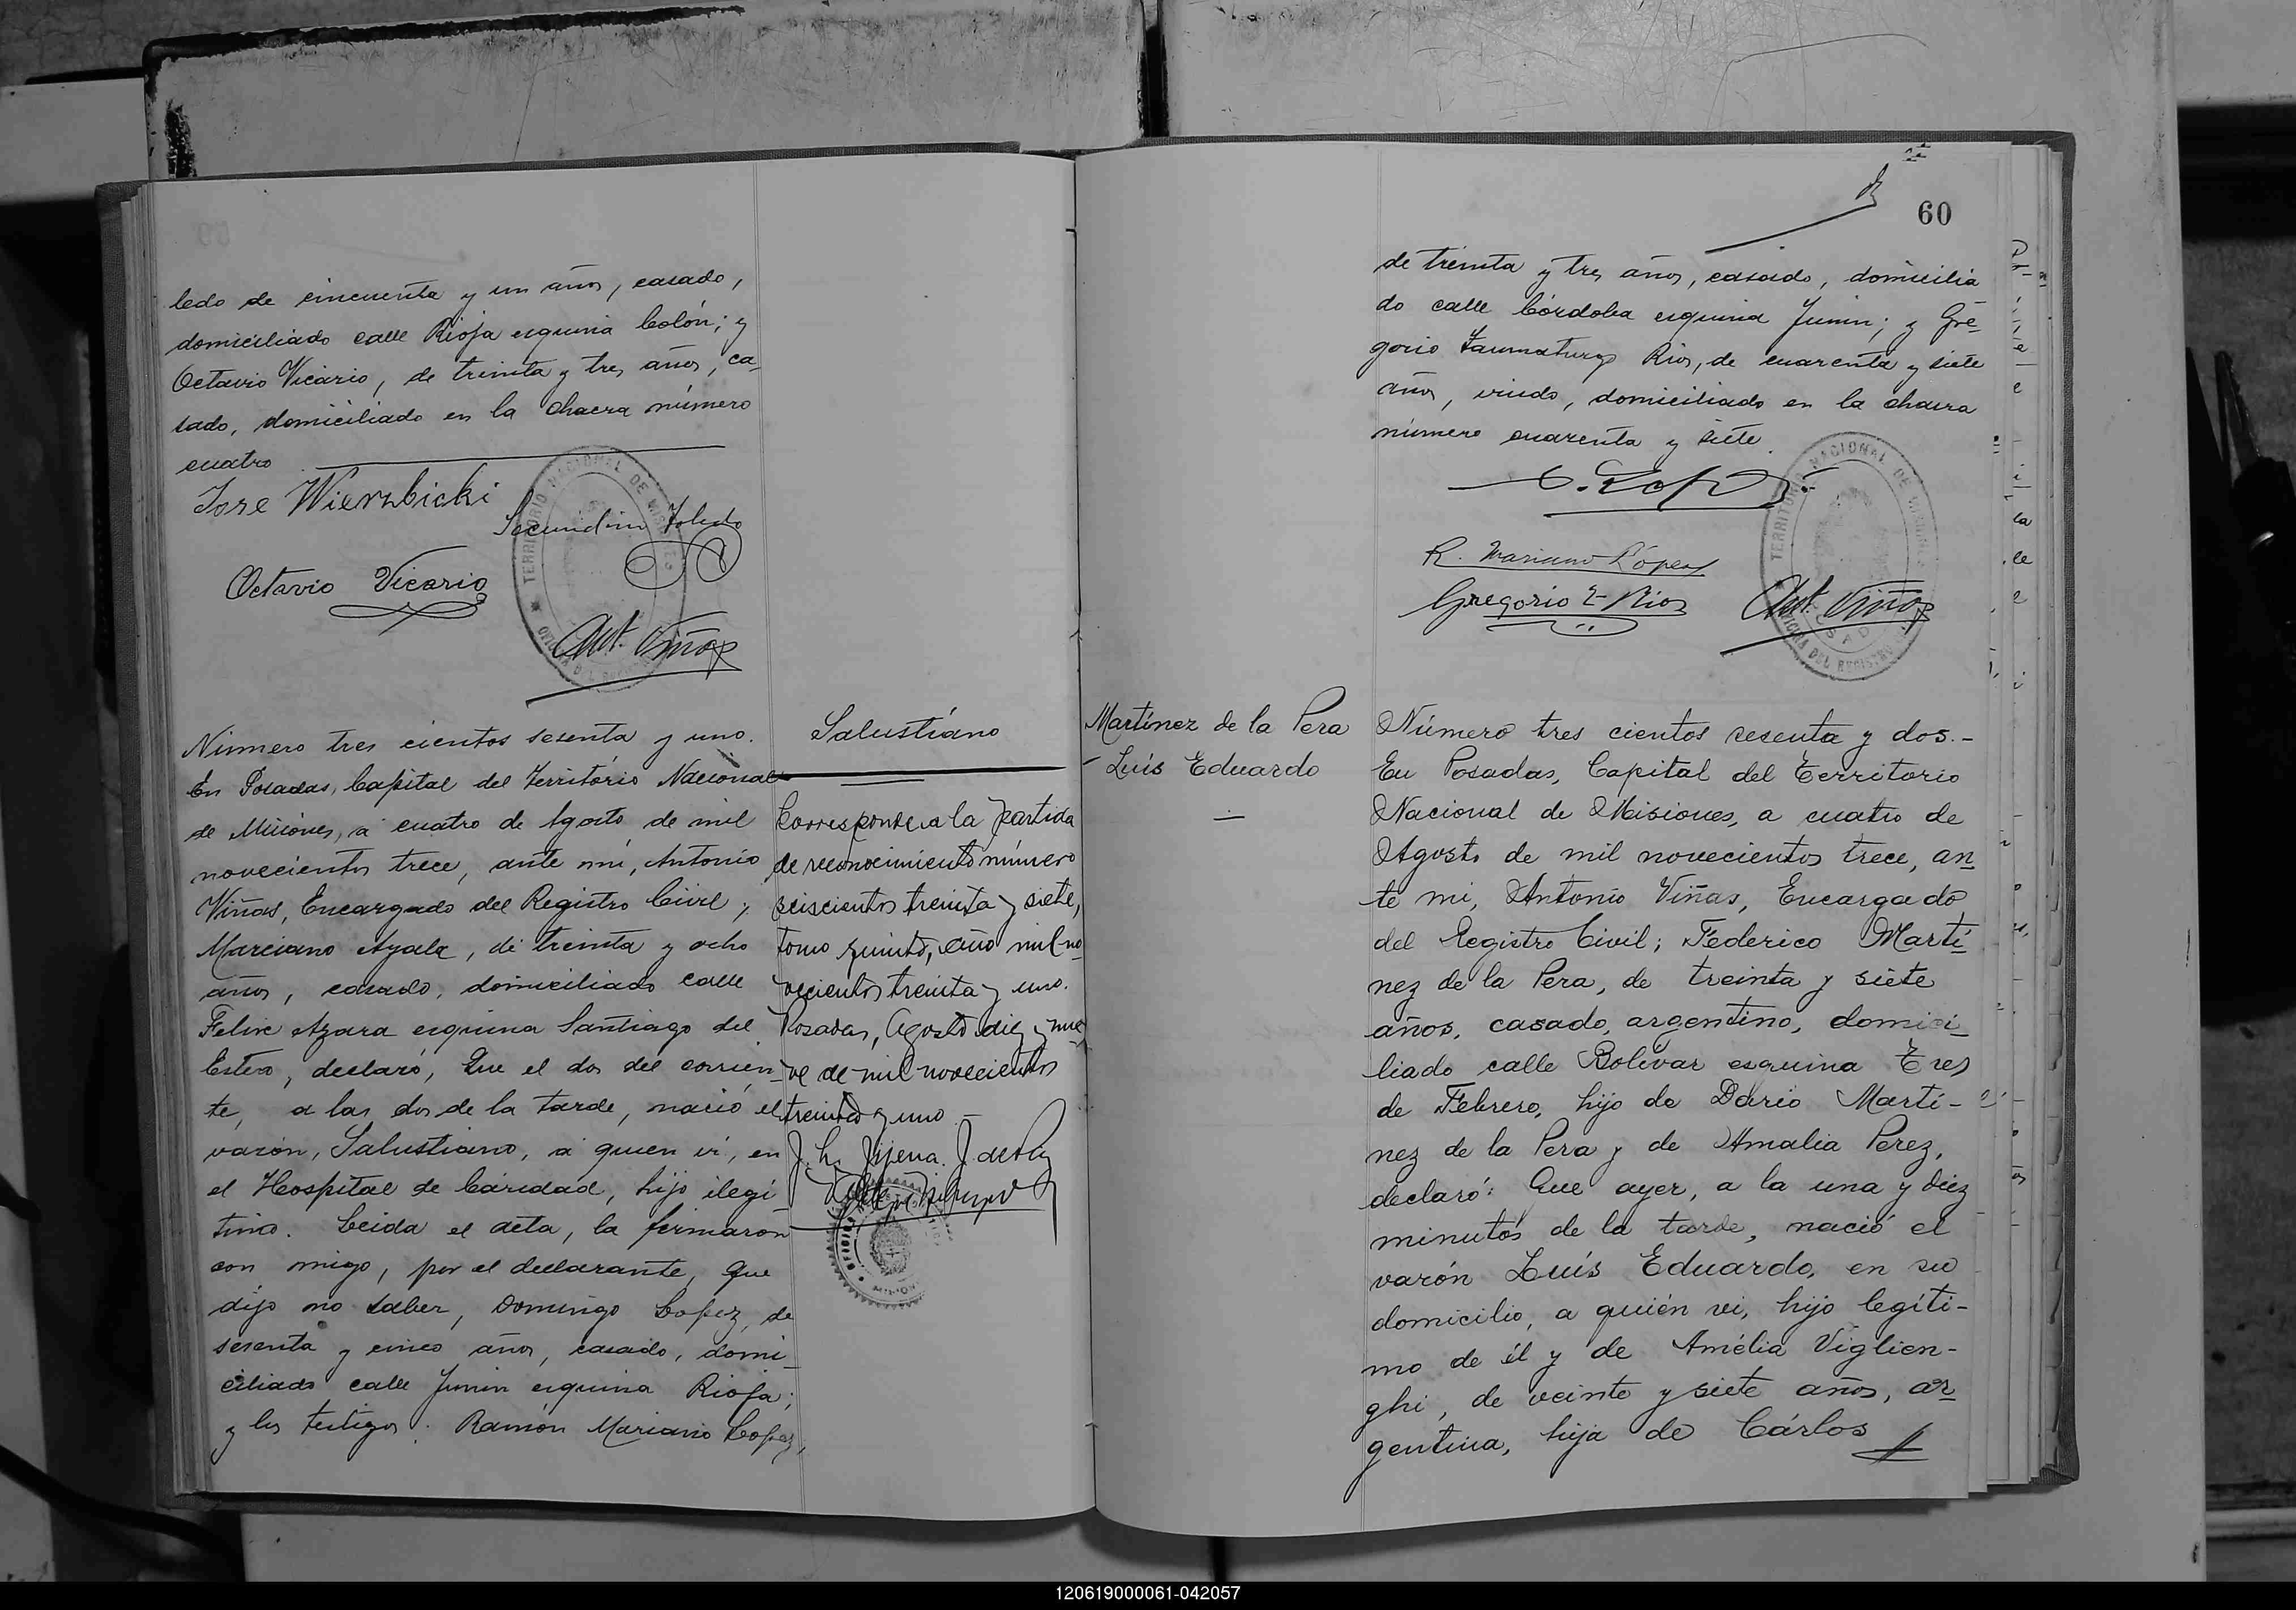 ledo de cincuenta y un años, casado,
domiciliado calle Rioja esquina Colón; y
Octavio Vicario, de treinta y tres años, ca-
sado, domiciliado en la chacra número
cuatro
Jose Wierzbicki
Secundin Toledo
Octavio Vicario
Ant. Viñas
TERRITORIO NACIONAL DE MISIONES
Número tres cientos sesenta y uno.
En Posadas, Capital del Território Nacional
de Misiones, a cuatro de Agosto de mil
novecientos trece, ante mi, Antonio
Viñas, Encargado del Registro Civil;
Marciano Ayala, de treinta y ocho
años, casado, domiciliado calle
Felix Azara esquina Santiago del
Estero, declaró, Que el dos del corrien-
te, a las dos de la tarde, nació el
varón, Salustiano, a quien vi, en
el Hospital de Caridad, hijo ilegi
timo. Leida el acta, la firmaron
con migo, por el declarante, que
dijo no saber, Domingo Lopez, de
sesenta y cinco años, casado, domi-
ciliado calle Junin esquina Rioja;
y los testigos: Ramón Mariano Lopez,
Salustiano
Corresponde a la partida
de reconocimiento número
seiscientos treinta y siete,
tomo quinto, año mil no-
vecientos treinta y uno.
Posadas, Agosto diez y nue-
ve de mil novecientos
treinta y uno -
60
de treinta y tres años, casado, domicilia
do calle Córdoba esquina Junin; y Gre-
gorio Taumaturgo Rios, de cuarenta y siete
años, viudo, domiciliado en la chacra
número cuarenta y siete.
R. Mariano López
Gregorio T. Rios
Ant. Viñas
TERRITORIO NACIONAL DE MISIONES
OFICINA DEL REGISTRO
Martínez de la Pera
Luis Eduardo
Número tres cientos sesenta y dos.-
En Posadas, Capital del Territorio
Nacional de Misiones, a cuatro de
Agosto de mil novecientos trece, an-
te mi, Antonio Viñas, Encargado
del Registro Civil; Federico Martí-
nez de la Pera, de treinta y siete
años, casado, argentino, domici-
liado calle Bolívar esquina Tres
de Febrero, hijo de Dario Martí-
nez de la Pera y de Amalia Perez,
declaró: Que ayer, a la una y diez
minutos de la tarde, nació el
varón Luís Eduardo, en su
domicilio, a quién vi, hijo legíti-
mo de él y de Amélia Viglien-
ghi, de veinte y siete años, ar-
gentina, hija de Cárlos
120619000061-042057